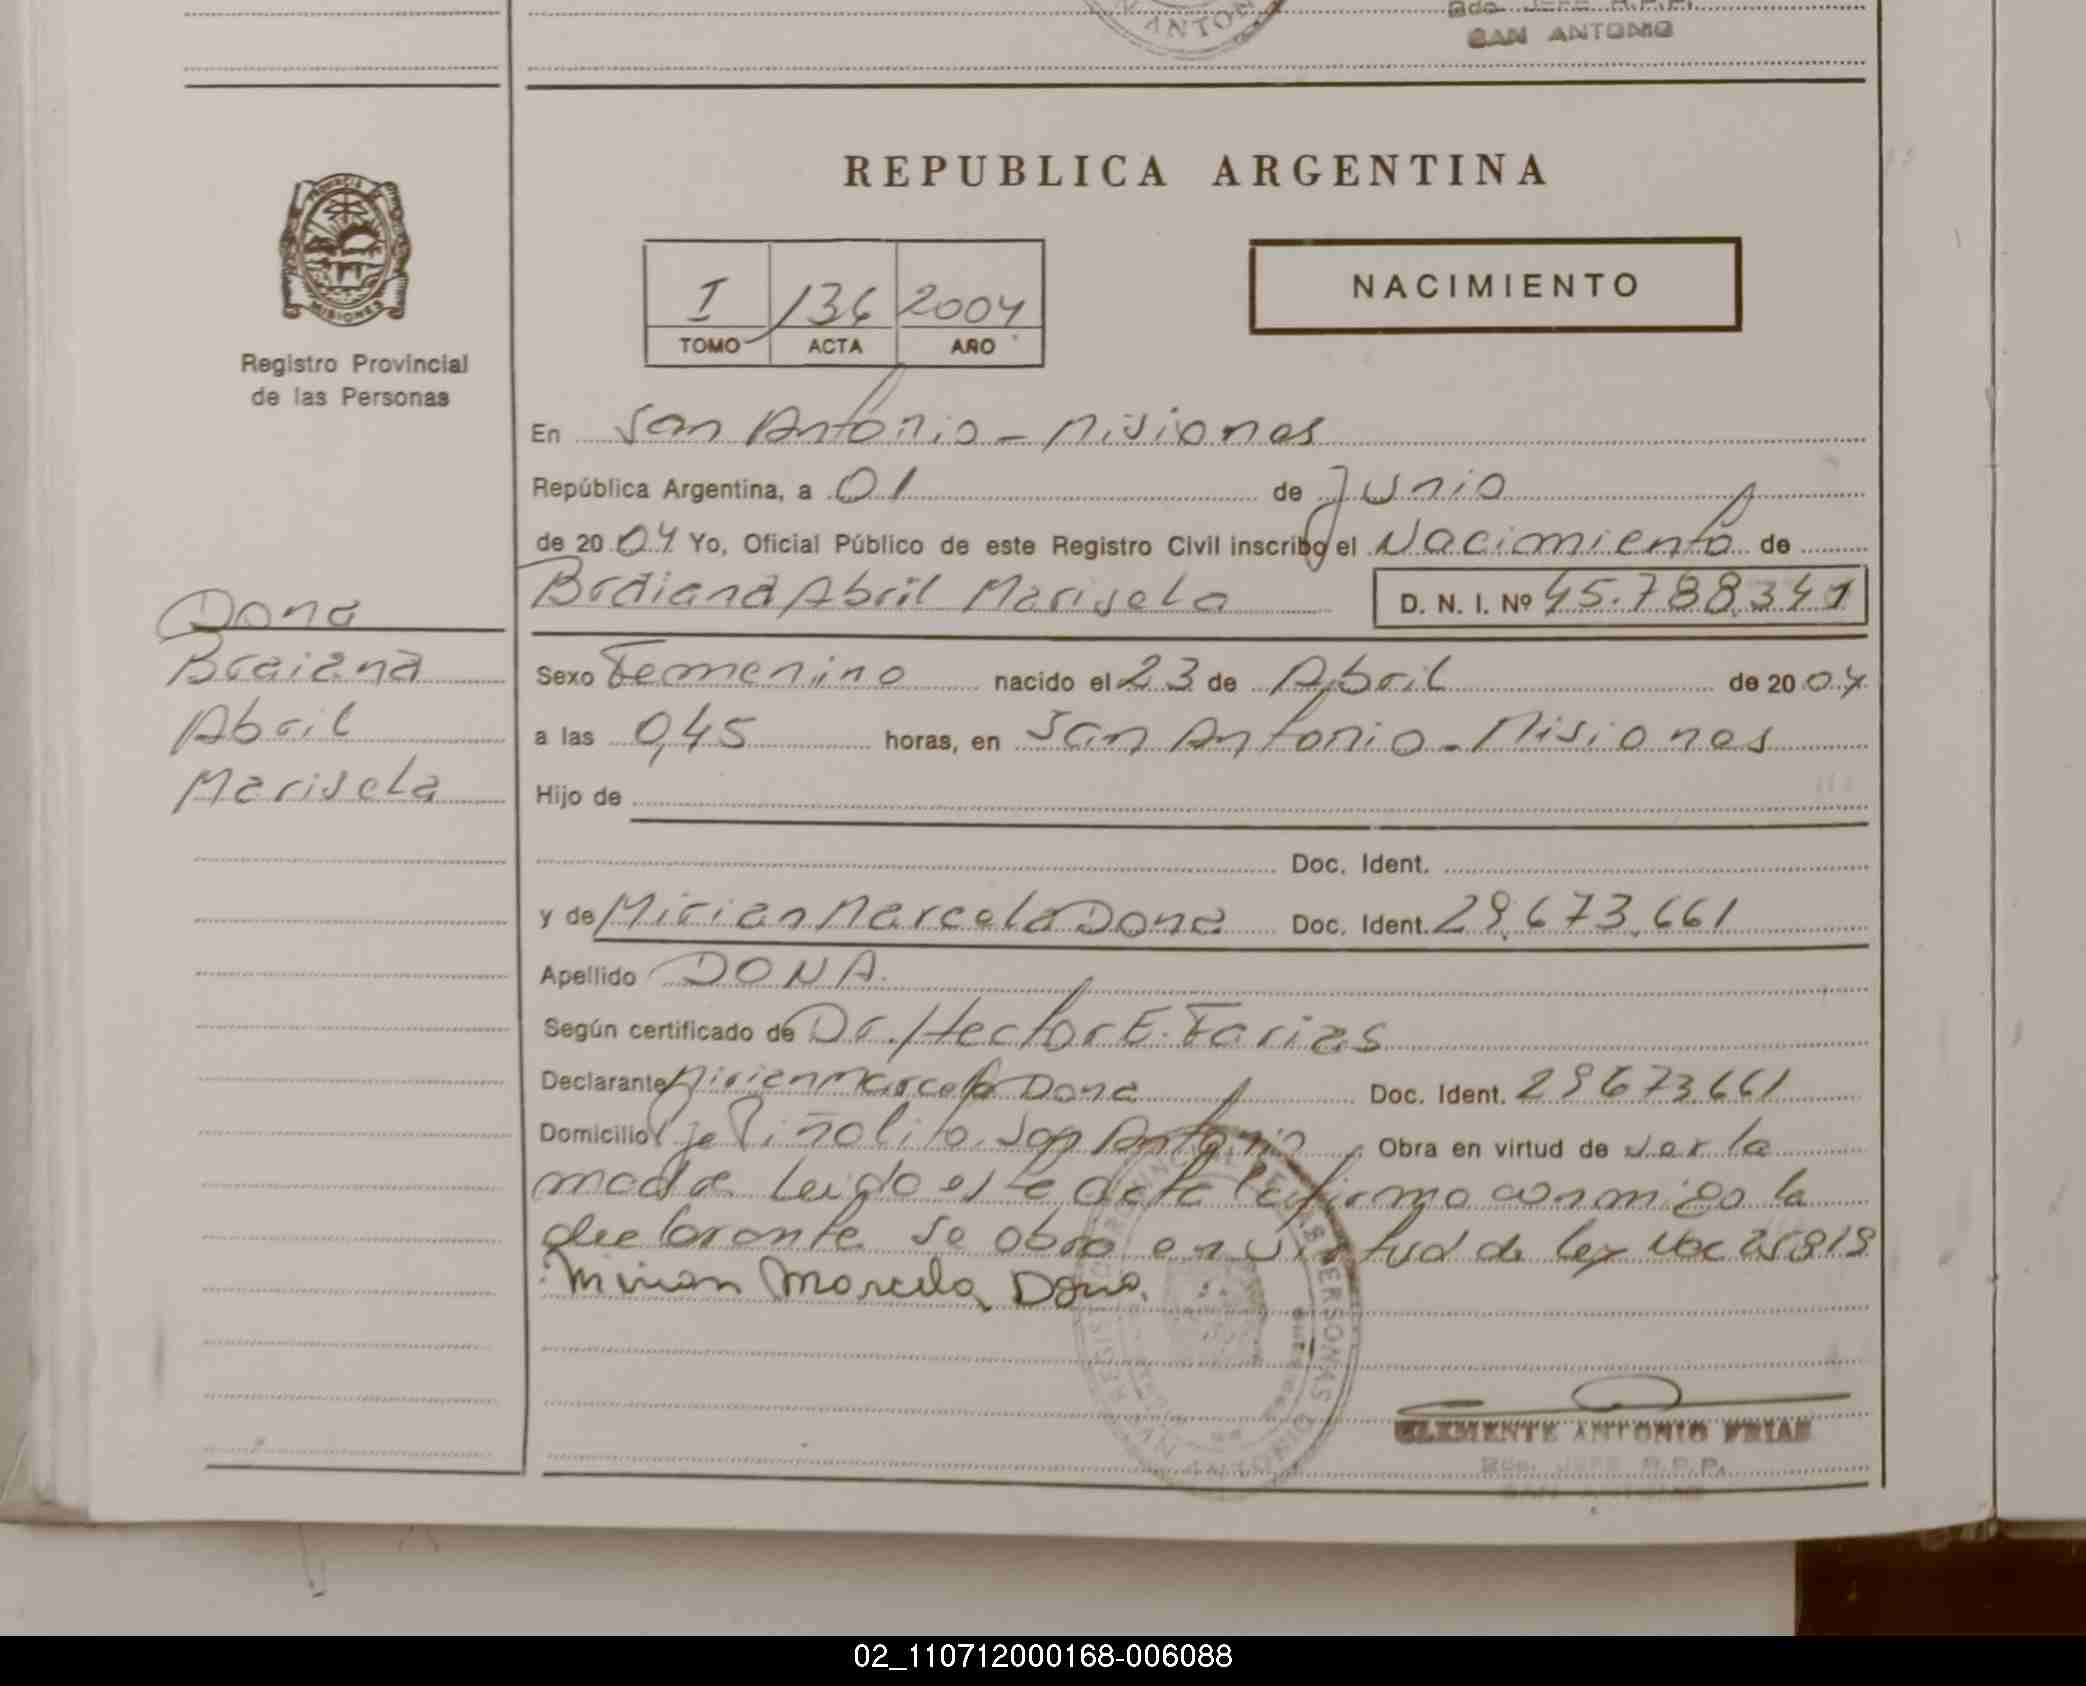 SAN ANTONIO
REPUBLICA ARGENTINA
NACIMIENTO
I 136 2004
TOMO ACTA AÑO
Registro Provincial
de las Personas
En San Antonio - Misiones
República Argentina, a 01 de Junio
de 2004 Yo, Oficial Público de este Registro Civil inscribo el Nacimiento de
Braiana Abril Marisela D. N. I. Nº 45.788.341
Dona
Braiana
Abril
Marisela
Sexo Femenino nacido el 23 de Abril de 2004
a las 0,45 horas, en San Antonio - Misiones
Hijo de
Doc. Ident.
y de Mirian Marcela Dona Doc. Ident. 29.673.661
Apellido DONA.
Según certificado de Dr. Hector E. Farias
Declarante Mirian Marcela Dona Doc. Ident. 29673.661
Domicilio Pje Piñalito San Antonio Obra en virtud de ser la
madre Leido este acta la firma conmigo la
declarante se obra en virtud de ley
Mirian Marcela Dona.
CLEMENTE ANTONIO FRIAS
Bdo. JEFE R.P.P.
SAN ANTONIO
02_110712000168-006088